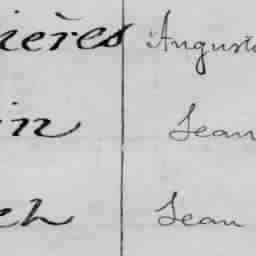 ières Auguste
in Jean
ch Jean